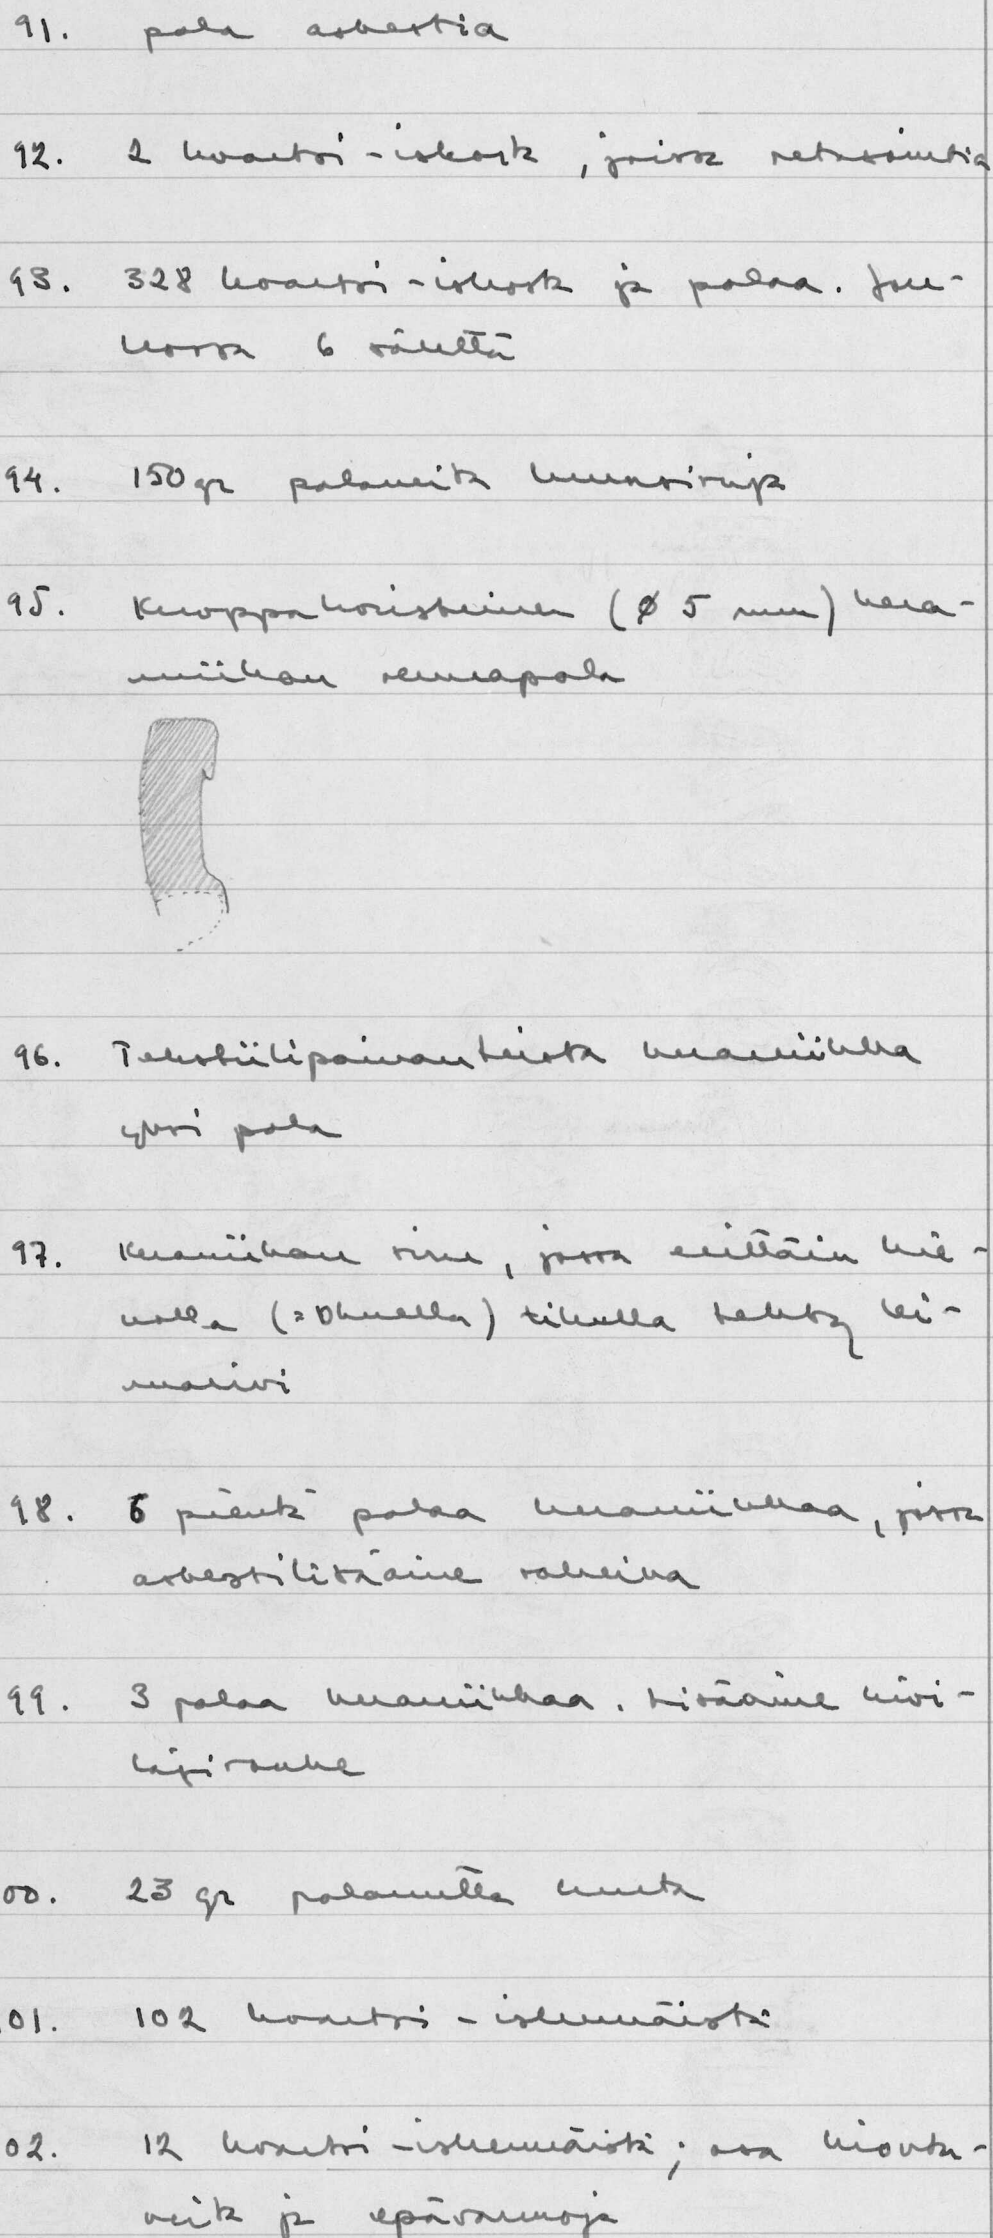 91. pala asbestia
92. 2 kvartsi-iskosta, joissa retusointia
93. 328 kvartsi-iskosta ja palaa. Jou-
kossa 6 sälettä
94. 150 gr palaneita luunsiruja
95. Kuoppakoristeinen (Ø 5 mm) kera-
miikan reunapala
96. Tekstiilipainanteista keramiikkaa
yksi pala
97. Keramiikan siru, jossa erittäin hie-
nolla (=ohuella) tikulla tehty
98. 6 pientä palaa keramiikkaa, jossa
asbestilisäaine rakeina
99. 3 palaa keramiikkaa. Lisäaine kivi-
lajirouhe
00. 23 gr palanutta luuta
01. 102 kvartsi-iskemäistä
02. 12 kvartsi-iskemäistä; osa
ja epävarmoja